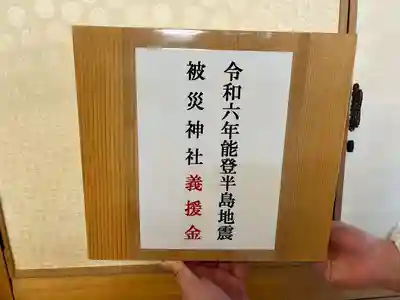 令和六年能登半島地震
被災神社義援金